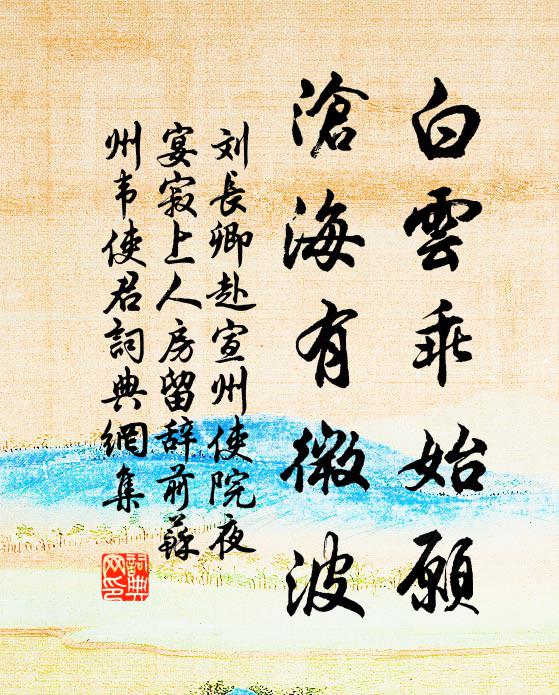 白雲乖始願
滄海有微波
刘長卿赴宣州使院夜
宴寂上人房留辞前蘇
州韦使君詞典網集
詞典
网印